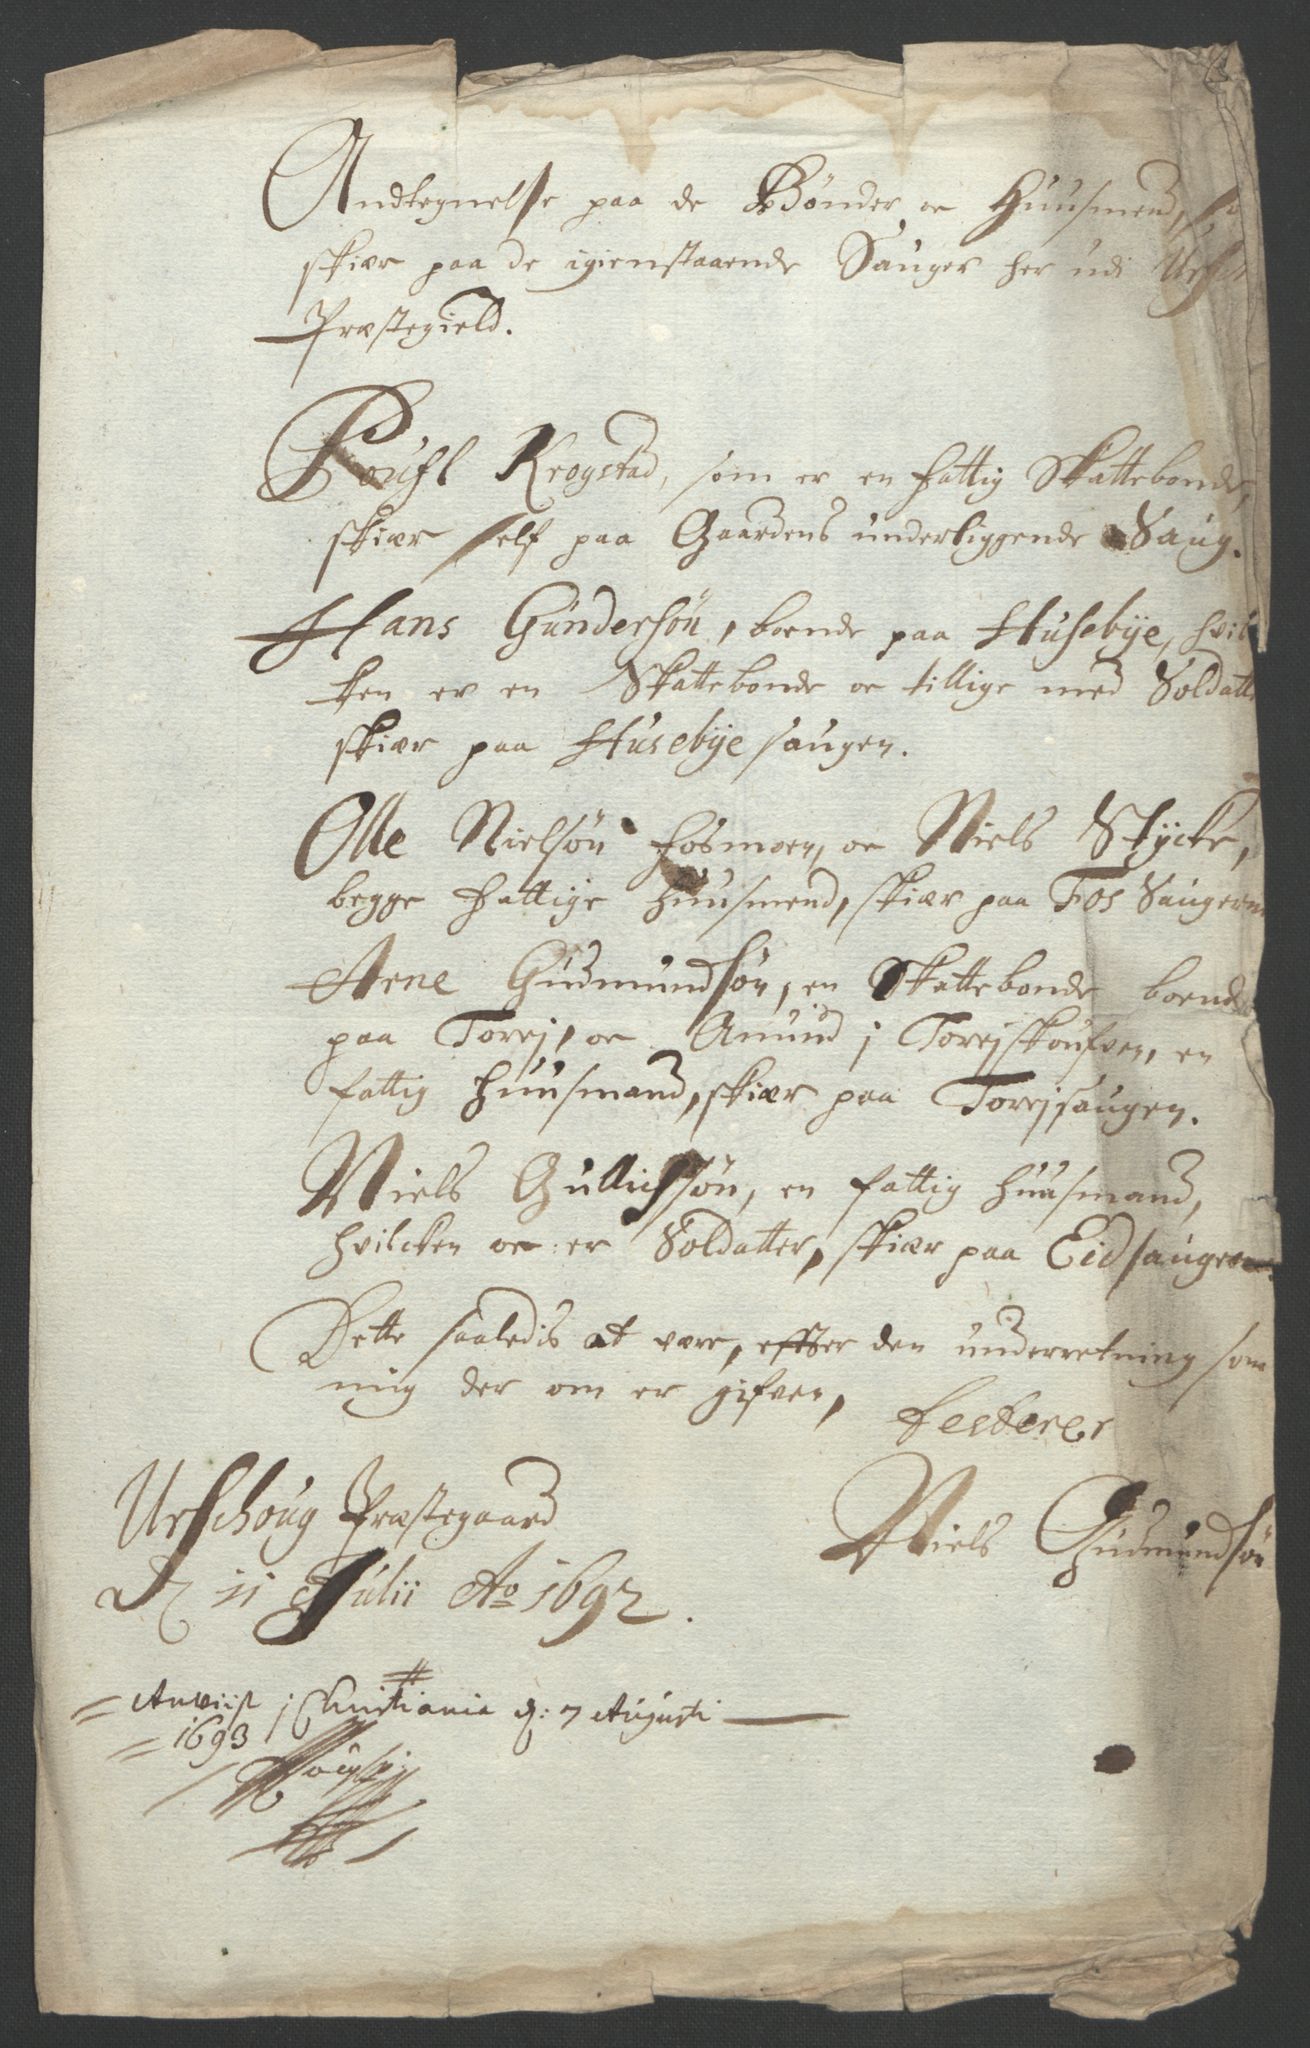 Andtegnelse paa de Bønder oc Huusmend,
skiær paa de igienstaaende Sauger her udi
Præstegield.
Poufl Krogstad, som er en fattig Skattebonde,
skiær self paa Gaardens underliggende Saug.
Hans Gundersøn, boende paa Husebye, hvil
ken er en Skattebonde oc tillige med Soldatt
skiær paa Husebye saugen.
Olle Nielsøn Fosmoen, oc Niels Stycke,
begge fattige Huusmend, skiær paa Fos Saugerne
Arne Gudmundsøn, en Skattebonde boende
paa Torej, oc Amund j Torejskoufven, en
fattig Huusmand, skiær paa Torejsaugen.
Niels Gullichsøn, en fattig Huusmand,
hvilcken oc er Soldatter, skiær paa Eidsaugen.
Dette saaledis at være, effter den underretning som
mig der om er gifven,
Niels Gudmundsøn
Urschoug Præstegaard
D 11 Julii Ao 1692.
Anviist j Christiania d: 7 Augusti
1693